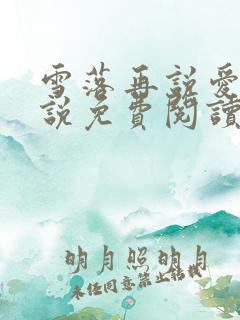 雪落再說愛
說免費閱讀
明月照明月
未经同意禁止转载